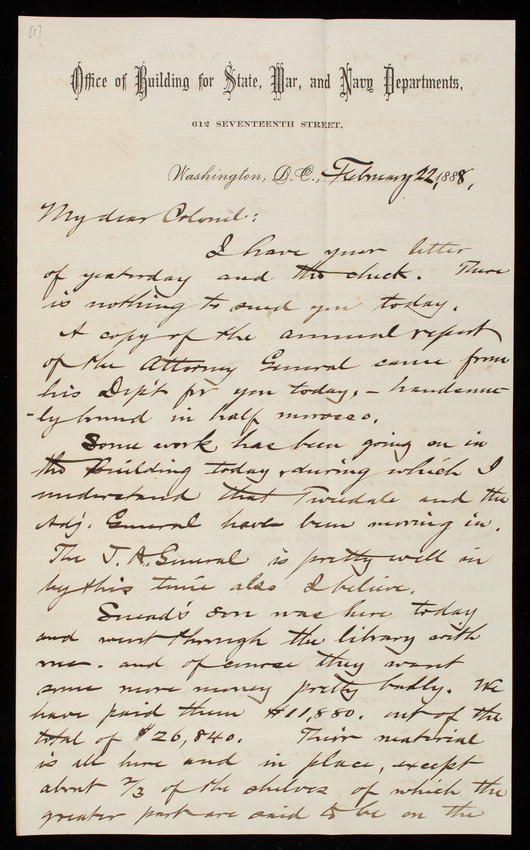 [1]
Office of Building for State, War, and Navy Departments,
612 SEVENTEENTH STREET,
Washington, D. C., February 22, 1888,
My dear Colonel:
I have your letter
of yesterday and the check. There
is nothing to send you today.
A copy of the annual report
of the Attorney General came from
his Dep't for you today, - handsome-
-ly bound in half morocco.
Some work has been going on in
the Building today, during which I
understand that Tweedale and the
Adj. General have been moving in.
The J. A. General is pretty well in
by this time also I believe.
Snead's son was here today
and went through the library with
me. and of course they want
some more money pretty badly. We
have paid them $11,880. out of the
total of $26,840. Their material
is all here and in place, except
about 2/3 of the shelves of which the
greater part are said to be on the